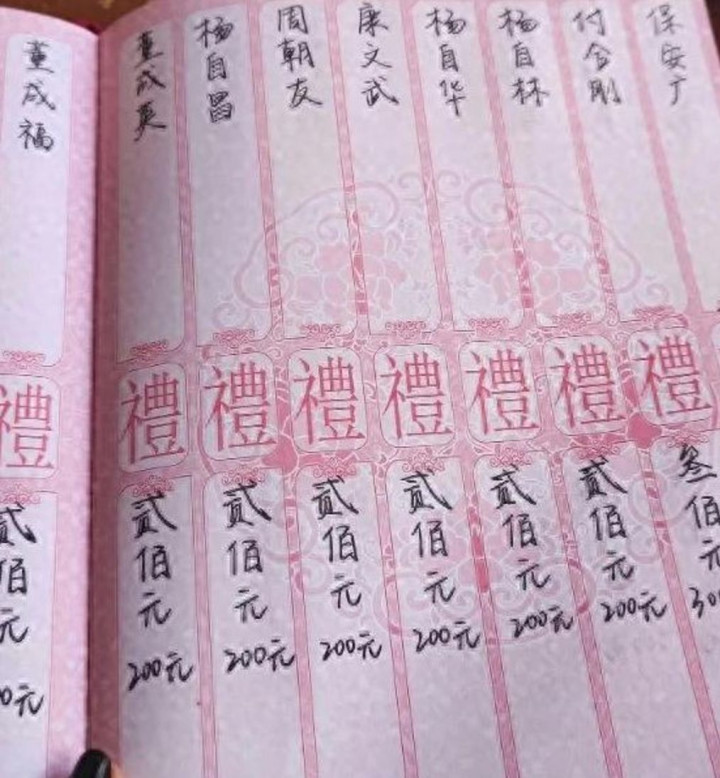 保安广
禮
叁佰元
付合刚
禮
贰佰元
200元
杨自林
禮
贰佰元
200元
杨自华
禮
贰佰元
200元
康文武
禮
贰佰元
200元
周朝友
禮
贰佰元
200元
杨自昌
禮
贰佰元
200元
董成英
禮
贰佰元
200元
董成福
禮
贰佰元